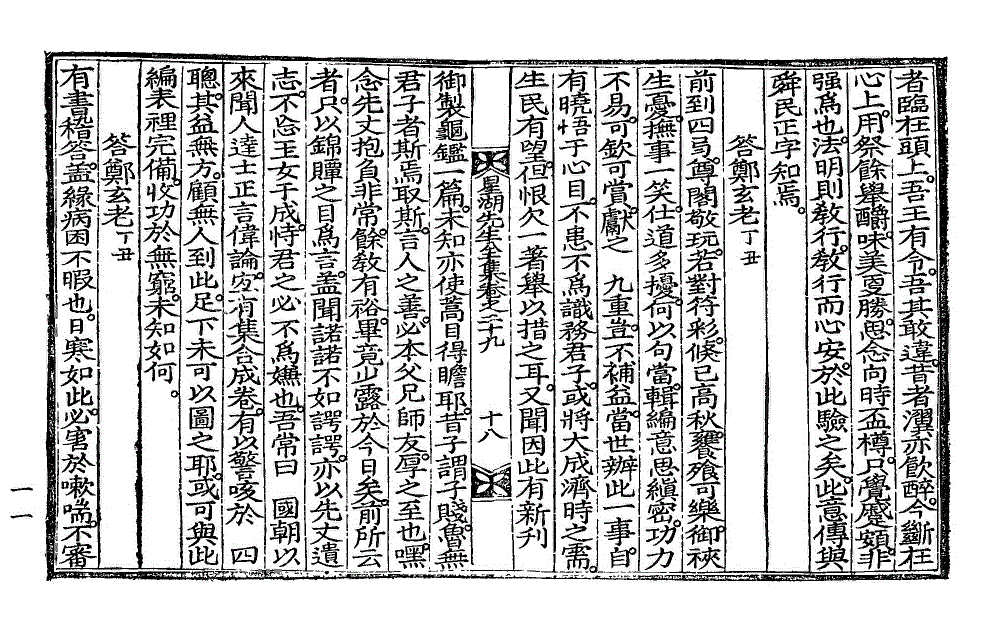 者臨在頭上。吾王有令。吾其敢違。昔者瀷亦飮醉。今斷在
心上。用祭餘擧釂。味美夐勝。思念向時盃樽。只覺蹙頞。非
强爲也。法明則敎行。敎行而心安。於此驗之矣。此意傳與
舜民正字知焉。
答鄭玄老 丁丑
前到四弓。尊閤敬玩。若對符彩。候已高秋。饔飧可樂。御裌
生憂。撫事一笑。仕道多擾。何以句當。輯編意思縝密。功力
不易。可欽可賞。獻之 九重。豈不補益。當世辦此一事。自
有曉吾于心目。不患不爲識務君子。或將大成濟時之需。
生民有望。但恨欠一著擧以措之耳。又聞因此有新刊
星湖先生全集卷之二十九 十八
御製龜鑑一篇。未知亦使蒿目得瞻耶。昔子謂子賤。魯無
君子者。斯焉取斯。言人之善。必本父兄師友。厚之至也。嘿
念先丈抱負非常。餘敎有裕。畢竟少露於今日矣。前所云
者。只以錦贉之目爲言。盖聞諾諾不如諤諤。亦以先丈遺
志。不忘玉女于成。恃君之必不爲嫌也。吾常曰 國朝以
來聞人達士正言偉論。宜有集合成卷。有以警咳於 四
聰。其益無方。顧無人到此。足下未可以圖之耶。或可與此
編表裡完備。收功於無窮。未知如何。
答鄭玄老 丁丑
有書稽答。盖緣病困不暇也。日寒如此。必害於嗽喘。不審
一一